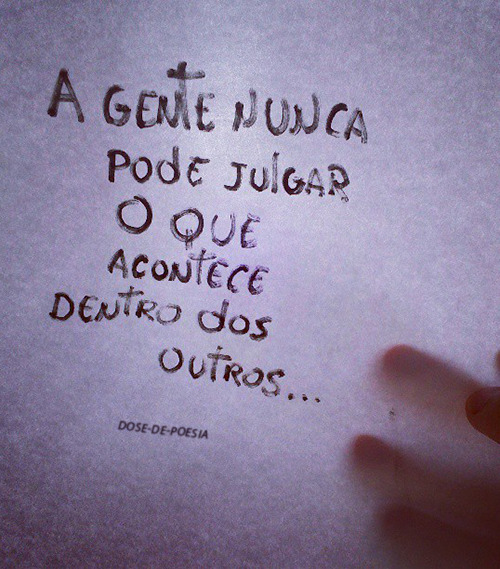 A GENTE NUNCA
PODE JULGAR
O QUE
ACONTECE
DENTRO dos
OUTROS...
DOSE-DE-POESIA